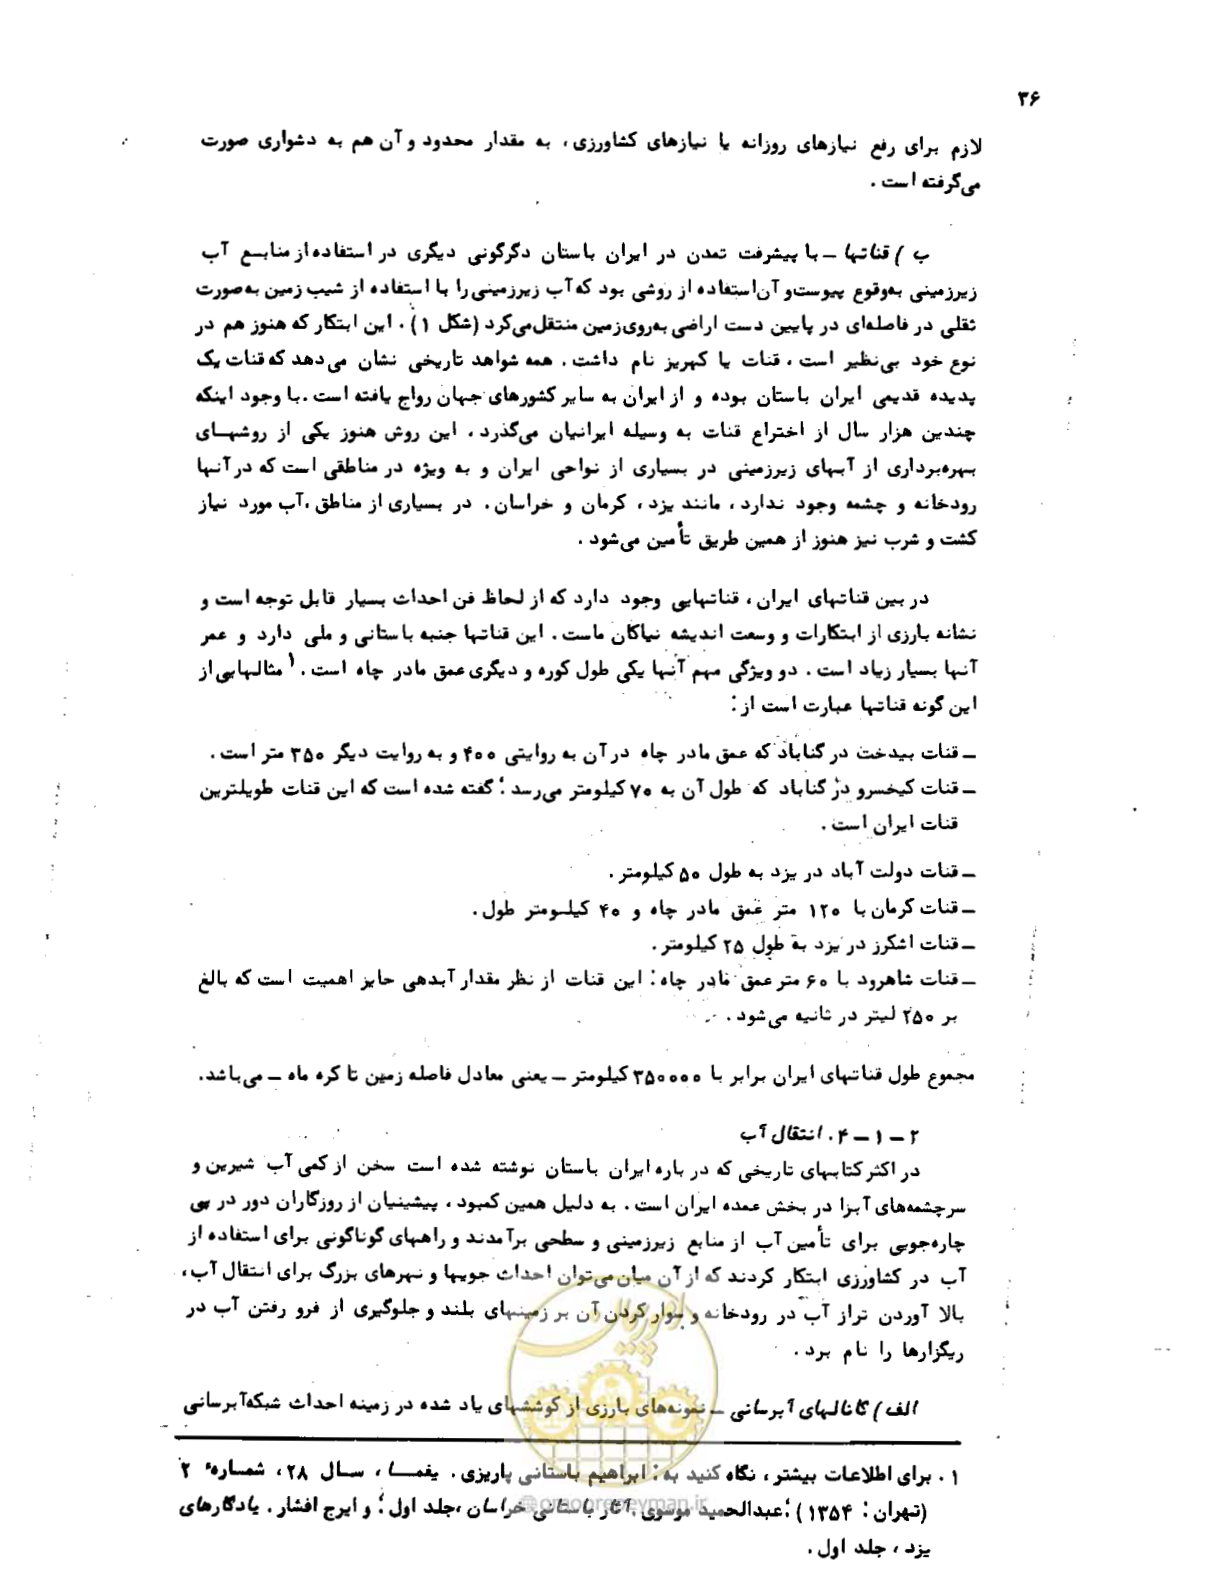 ۳۶
لازم برای رفع نیازهای روزانه یا نیازهای کشاورزی، به مقدار محدود و آن هم به دشواری صورت
می‌گرفته است.
ب) قناتها ــ با پیشرفت تمدن در ایران باستان دگرگونی دیگری در استفاده از منابـع آب
زیرزمینی به‌وقوع پیوست و آن استفاده از روشی بود که آب زیرزمینی را با استفاده از شیب زمین به‌صورت
ثقلی در فاصله‌ای در پایین دست اراضی به‌روی زمین منتقل می‌کرد (شکل ۱). این ابتکار که هنوز هم در
نوع خود بی‌نظیر است، قنات یا کهریز نام داشت. همه شواهد تاریخی نشان می‌دهد که قنات یک
پدیده قدیمی ایران باستان بوده و از ایران به سایر کشورهای جهان رواج یافته است. با وجود اینکه
چندین هزار سال از اختراع قنات به وسیله ایرانیان می‌گذرد، این روش هنوز یکی از روشهـای
بهره‌برداری از آبهای زیرزمینی در بسیاری از نواحی ایران و به ویژه در مناطقی است که در آنها
رودخانه و چشمه وجود ندارد، مانند یزد، کرمان و خراسان. در بسیاری از مناطق، آب مورد نیاز
کشت و شرب نیز هنوز از همین طریق تأمین می‌شود.
در بین قناتهای ایران، قناتهایی وجود دارد که از لحاظ فن احداث بسیار قابل توجه است و
نشانه بارزی از ابتکارات و وسعت اندیشه نیاکان ماست. این قناتها جنبه باستانی و ملی دارد و عمر
آنها بسیار زیاد است. دو ویژگی مهم آنها یکی طول کوره و دیگری عمق مادر چاه است.۱ مثالهایی از
این گونه قناتها عبارت است از:
ــ قنات بیدخت در گناباد که عمق مادر چاه در آن به روایتی ۴۰۰ و به روایت دیگر ۳۵۰ متر است.
ــ قنات کیخسرو در گناباد که طول آن به ۷۰ کیلومتر می‌رسد؛ گفته شده است که این قنات طویلترین
قنات ایران است.
ــ قنات دولت آباد در یزد به طول ۵۰ کیلومتر.
ــ قنات کرمان با ۱۲۰ متر عمق مادر چاه و ۴۰ کیلـومتر طول.
ــ قنات اشکرز در یزد به طول ۲۵ کیلومتر.
ــ قنات شاهرود با ۶۰ متر عمق مادر چاه: این قنات از نظر مقدار آبدهی حایز اهمیت است که بالغ
بر ۲۵۰ لیتر در ثانیه می‌شود.
مجموع طول قناتهای ایران برابر با ۳۵۰۰۰۰ کیلومتر ــ یعنی معادل فاصله زمین تا کره ماه ــ می‌باشد.
۲ – ۱ – ۴. انتقال آب
در اکثر کتابهای تاریخی که در باره ایران باستان نوشته شده است سخن از کمی آب شیرین و
سرچشمه‌های آبزا در بخش عمده ایران است. به دلیل همین کمبود، پیشینیان از روزگاران دور در پی
چاره‌جویی برای تأمین آب از منابع زیرزمینی و سطحی برآمدند و راههای گوناگونی برای استفاده از
آب در کشاورزی ابتکار کردند که از آن میان می‌توان احداث جویها و نهرهای بزرگ برای انتقال آب،
بالا آوردن تراز آب در رودخانه و سوار کردن آن بر زمینهای بلند و جلوگیری از فرو رفتن آب در
ریگزارها را نام برد.
الف) کانالهای آبرسانی ــ نمونه‌های بارزی از کوششهای یاد شده در زمینه احداث شبکه آبرسانی
۱. برای اطلاعات بیشتر، نگاه کنید به: ابراهیم باستانی پاریزی. یغمـا، سـال ۲۸، شمـاره ۲
(تهران: ۱۳۵۴)؛ عبدالحمید موسوی. آثار باستانی خراسان، جلد اول؛ و ایرج افشار. یادگارهای
یزد، جلد اول.